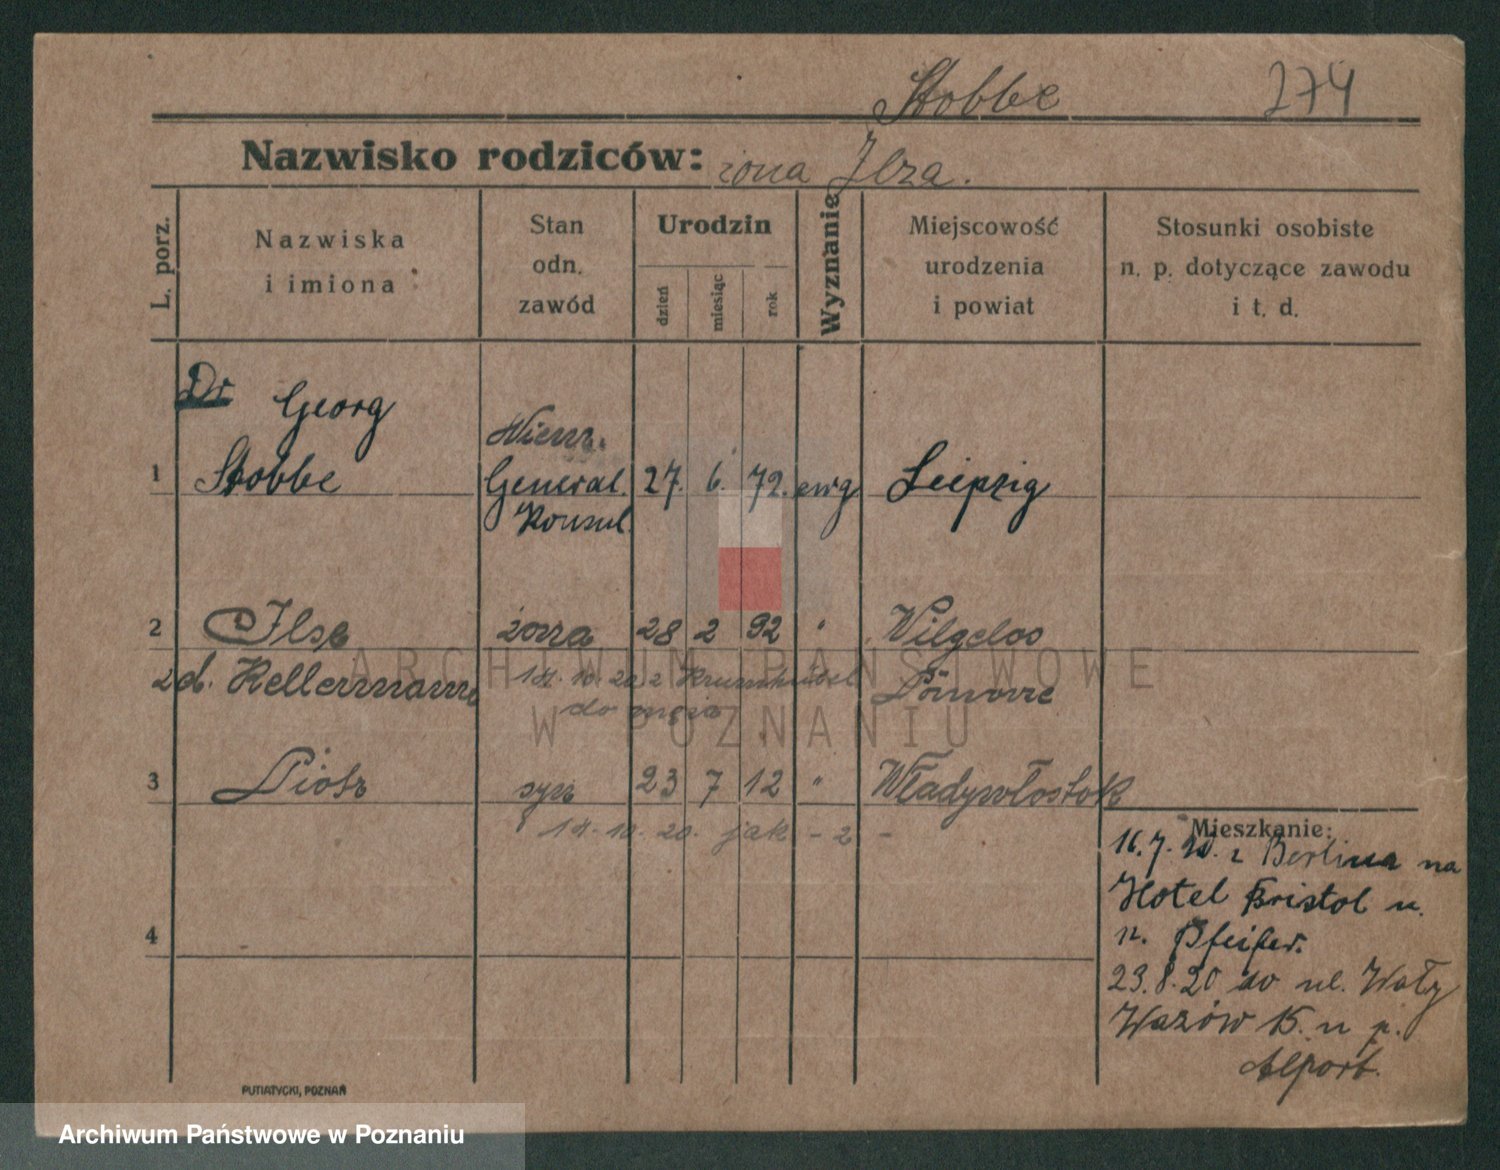 Stobbe 274
Nazwisko rodziców: żona Ilza.
L. porz.
Nazwiska
i imiona
Stan
odn.
zawód
Urodzin
dzień
miesiąc
rok
Wyznanie
Miejscowość
urodzenia
i powiat
Stosunki osobiste
n. p. dotyczące zawodu
i t. d.
Dr Georg
Niem.
1 Stobbe General. 27. 6. 72. ewg Leipzig
Konsul.
2 Ilse żona 28 2 92 "
zd. Kellermann 14.10.20 z Krummhübel
do męża
3 Piotr syn 23 7 12 " Władywostok
14.10.20. jak - 2 -
4
Mieszkanie:
16.7.20. z Berlina na
Hotel Bristol u.
n. Pfeifer.
23.8.20 do ul. Wały
Wazów 15. u p.
Alport.
PUTIATYCKI, POZNAŃ
ARCHIWUM PAŃSTWOWE
W POZNANIU
Archiwum Państwowe w Poznaniu